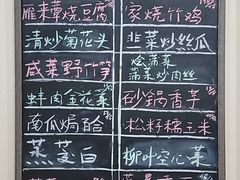 雁来蕈烧豆腐
清炒菊花头
咸菜野竹笋
蚌肉金花菜
南瓜焗百合
蒸茭白
家烧竹鸡
韭菜炒丝瓜
烩蒲菜
蒲菜炒肉丝
砂锅香芋
松籽糯玉米
柳叶空心菜